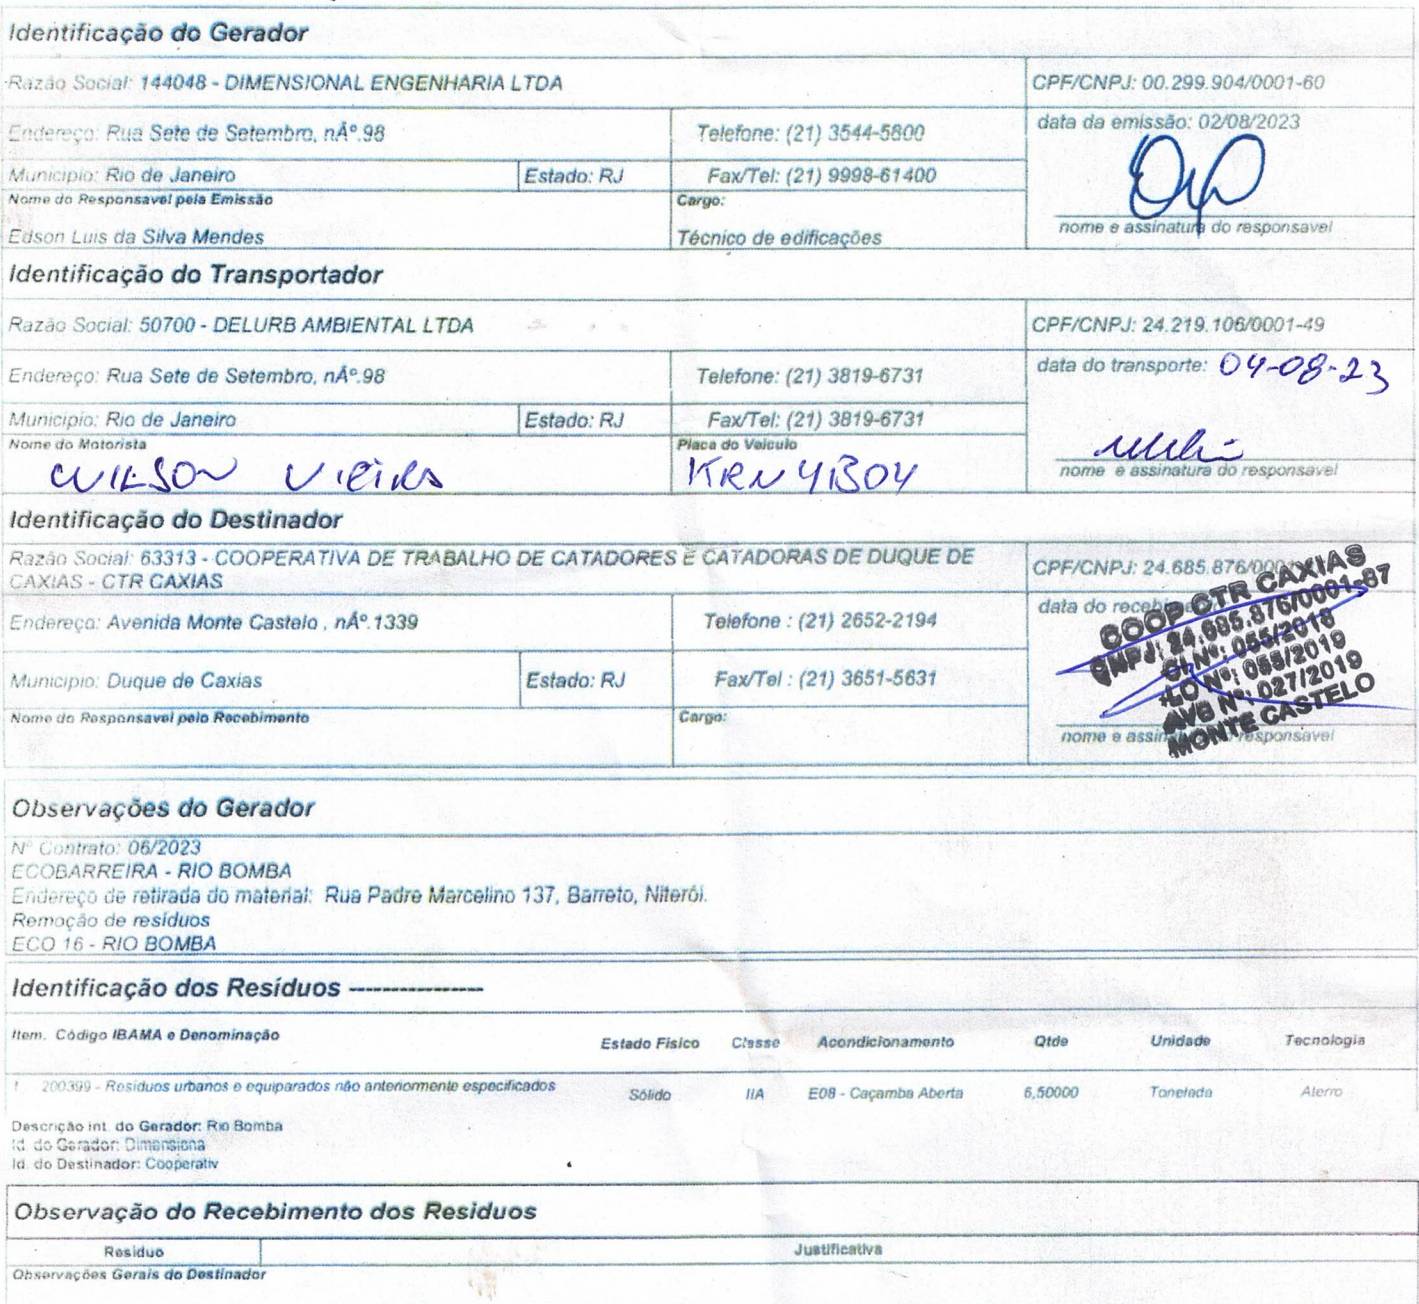 Identificação do Gerador
Razão Social: 144048 - DIMENSIONAL ENGENHARIA LTDA
CPF/CNPJ: 00.299.904/0001-60
Endereço: Rua Sete de Setembro, nÂº.98
Telefone: (21) 3544-5800
data da emissão: 02/08/2023
Municipio: Rio de Janeiro
Estado: RJ
Fax/Tel: (21) 9998-61400
Nome do Responsavel pela Emissão
Cargo:
nome e assinatura do responsavel
Edson Luis da Silva Mendes
Técnico de edificações
Identificação do Transportador
Razão Social: 50700 - DELURB AMBIENTAL LTDA
CPF/CNPJ: 24.219.106/0001-49
Endereço: Rua Sete de Setembro, nÂº.98
Telefone: (21) 3819-6731
data do transporte: 04-08-23
Municipio: Rio de Janeiro
Estado: RJ
Fax/Tel: (21) 3819-6731
Nome do Motorista
Placa do Veiculo
WILSON VIEIRA
KRN4B04
nome e assinatura do responsavel
Identificação do Destinador
Razão Social: 63313 - COOPERATIVA DE TRABALHO DE CATADORES E CATADORAS DE DUQUE DE
CAXIAS - CTR CAXIAS
CPF/CNPJ: 24.685.876/0001
Endereço: Avenida Monte Castelo , nÂº.1339
Telefone : (21) 2652-2194
data do
COOP CTR CAXIAS
CNPJ: 24.685.876/0001-87
Nº: 055/2018
LO Nº: 055/2019
AVB Nº: 027/2019
MONTE CASTELO
Municipio: Duque de Caxias
Estado: RJ
Fax/Tel : (21) 3651-5631
Nome do Responsavel pelo Recebimento
Cargo:
nome e responsavel
Observações do Gerador
Nº Contrato: 06/2023
ECOBARREIRA - RIO BOMBA
Endereço de retirada do material: Rua Padre Marcelino 137, Barreto, Niterói.
Remoção de resíduos
ECO 16 - RIO BOMBA
Identificação dos Resíduos ----------------
Item. Código IBAMA e Denominação Estado Fisico Classe Acondicionamento Qtde Unidade Tecnologia
1 200399 - Residuos urbanos e equiparados não anteriormente especificados Sólido IIA E08 - Caçamba Aberta 6,50000 Tonelada Aterro
Descrição int. do Gerador: Rio Bomba
Id. do Gerador: Dimensiona
Id. do Destinador: Cooperativ
Observação do Recebimento dos Residuos
Residuo Justificativa
Observações Gerais do Destinador